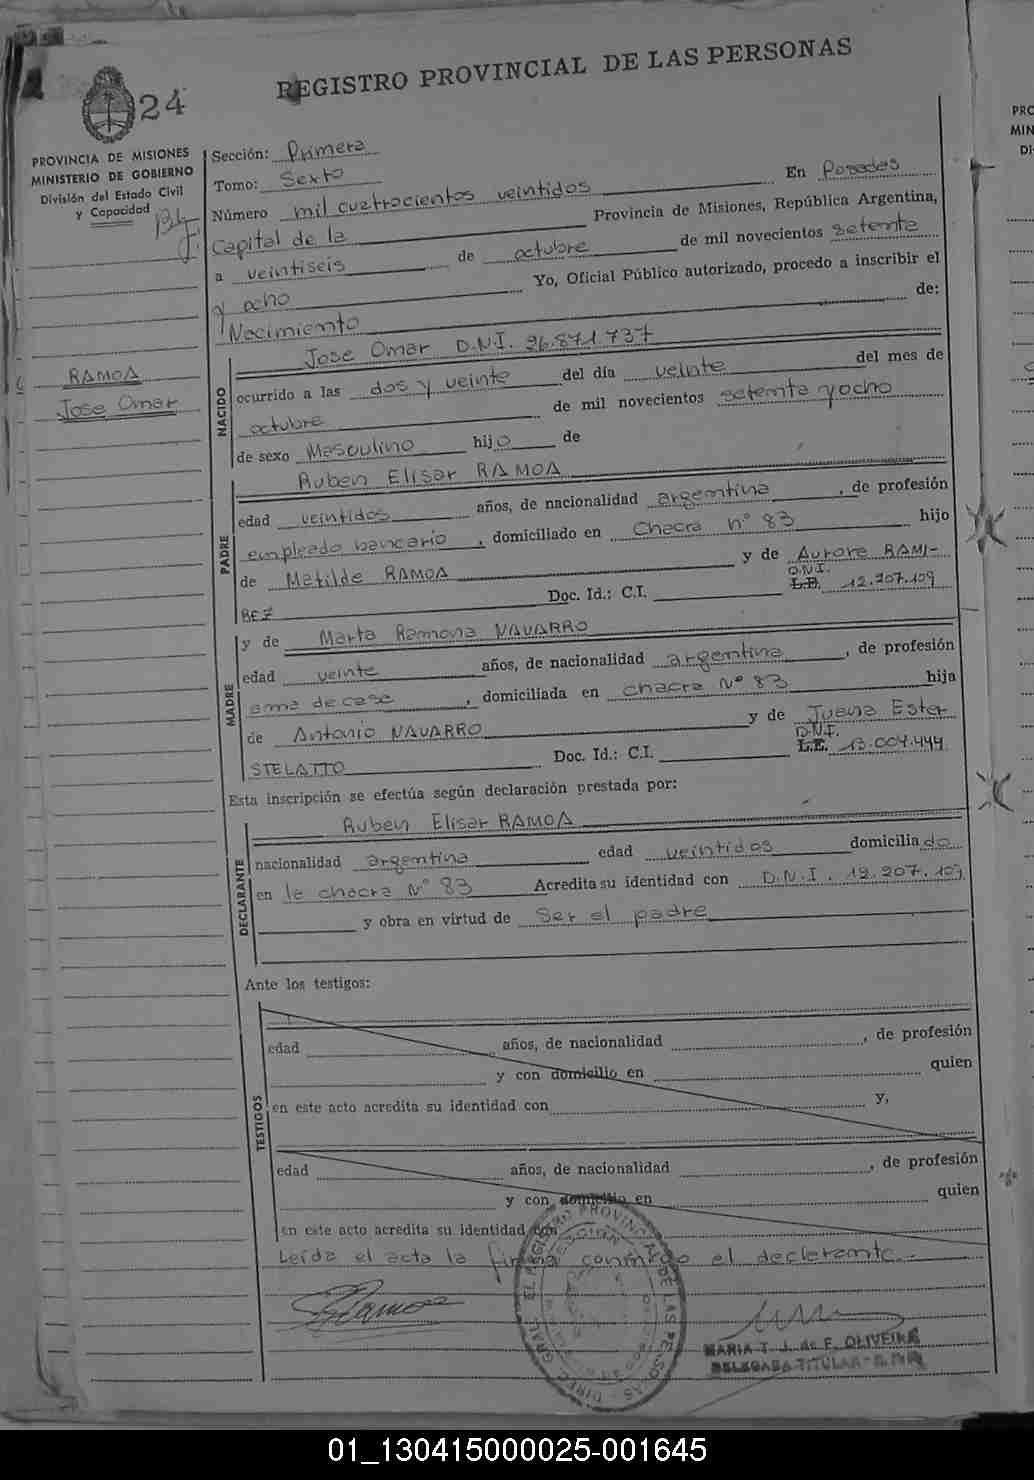 REGISTRO PROVINCIAL DE LAS PERSONAS
24
PROVINCIA DE MISIONES
MINISTERIO DE GOBIERNO
División del Estado Civil
y Capacidad
RAMOA
Jose Omar
Sección: Primera
Tomo: Sexto
Número mil cuatrocientos veintidos En Posadas
Capital de la Provincia de Misiones, República Argentina,
a veintiseis de octubre de mil novecientos setenta
y ocho Yo, Oficial Público autorizado, procedo a inscribir el
Nacimiento de:
NACIDO
Jose Omar D.N.I. 26.871.737
ocurrido a las dos y veinte del día veinte del mes de
octubre de mil novecientos setenta y ocho
de sexo Masculino hijo de
PADRE
Ruben Elisar RAMOA
edad veintidos años, de nacionalidad argentina, de profesión
empleado bancario, domiciliado en Chacra n° 83 hijo
de Matilde RAMOA y de Aurora RAMI-
REZ Doc. Id.: C.I. D.N.I. 12.207.109
MADRE
y de Marta Ramona NAVARRO
edad veinte años, de nacionalidad argentina, de profesión
ama de casa, domiciliada en chacra N° 83 hija
de Antonio NAVARRO y de Juana Ester
STELATTO Doc. Id.: C.I. D.N.I. L.E. 13.004.444
Esta inscripción se efectúa según declaración prestada por:
DECLARANTE
Ruben Elisar RAMOA
nacionalidad argentina edad veintidos domiciliado
en la chacra N° 83 Acredita su identidad con D.N.I. 12.207.109
y obra en virtud de Ser el padre
Ante los testigos:
TESTIGOS
edad años, de nacionalidad , de profesión
y con domicilio en quien
en este acto acredita su identidad con y,
edad años, de nacionalidad , de profesión
y con domicilio en quien
en este acto acredita su identidad con
Leída el acta la firma conmigo el declarante.-
DIREC. GRAL. EL REGISTRO PROVINCIAL DE LAS PERSONAS
MARIA T. J. de F. OLIVEIRA
DELEGADA TITULAR
PRO
MIN
DI
01_130415000025-001645